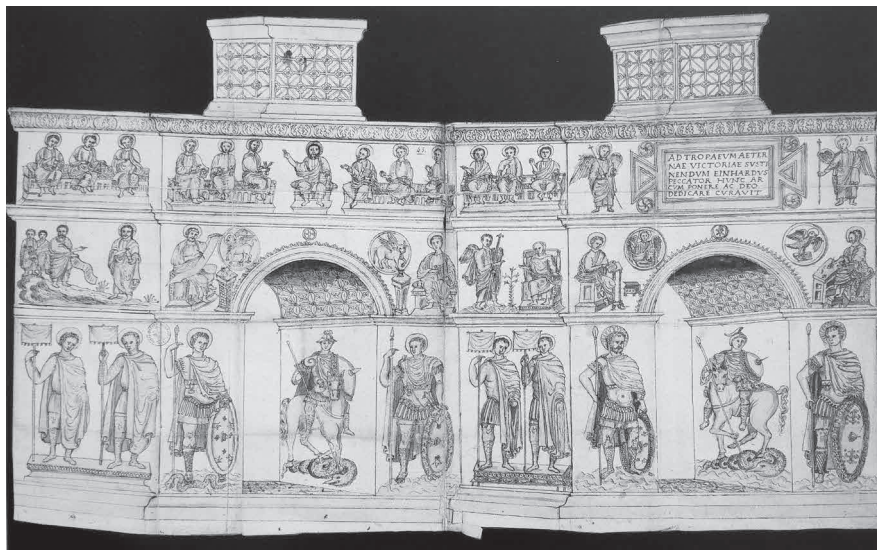 AD TROPAEVM AETER
NAE VICTORIAE SVSTI
NENDVM EINHARDVS
PECCATOR HVNC AR
CVM PONERE AC DEO
DEDICARE CVRAVIT